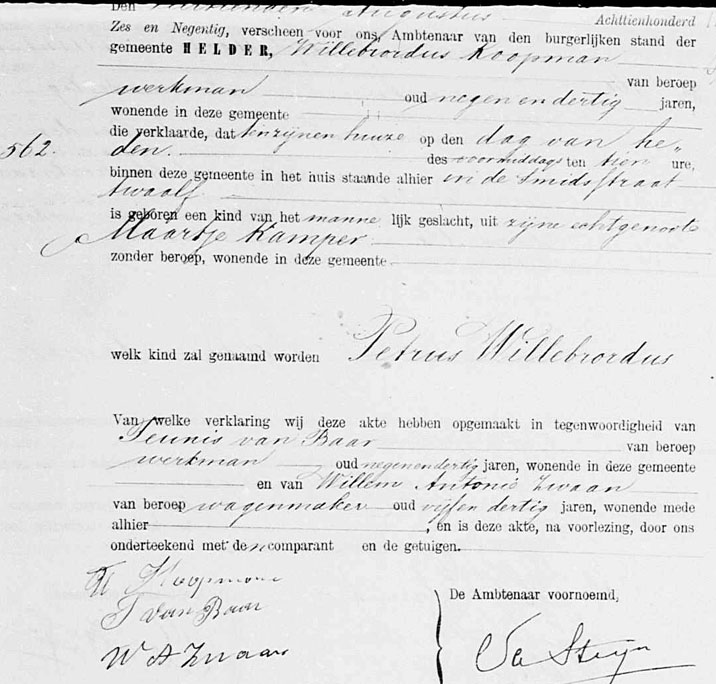 Den Augustus Achttienhonderd
Zes en Negentig, verscheen voor ons, Ambtenaar van den burgerlijken stand der
gemeente HELDER, Willebrordus Koopman
van beroep
werkman oud negen en dertig jaren,
wonende in deze gemeente
die verklaarde, dat ten zijnen huize op den dag van he„
562. den. des voormiddags ten tien ure,
binnen deze gemeente in het huis staande alhier in de Smidsstraat
twaalf
is geboren een kind van het manne lijk geslacht, uit zijne echtgenoote
Maartje Kamper
zonder beroep, wonende in deze gemeente
welk kind zal genaamd worden Petrus Willebrordus
Van welke verklaring wij deze akte hebben opgemaakt in tegenwoordigheid van
Teunis van Baar van beroep
werkman oud negen en dertig jaren, wonende in deze gemeente
en van Willem Antonie Zwaan
van beroep wagenmaker oud vijf en dertig jaren, wonende mede
alhier , en is deze akte, na voorlezing, door ons
onderteekend met den comparant en de getuigen.
W Koopman
T van Baar
W A Zwaan
De Ambtenaar voornoemd,
Steijn